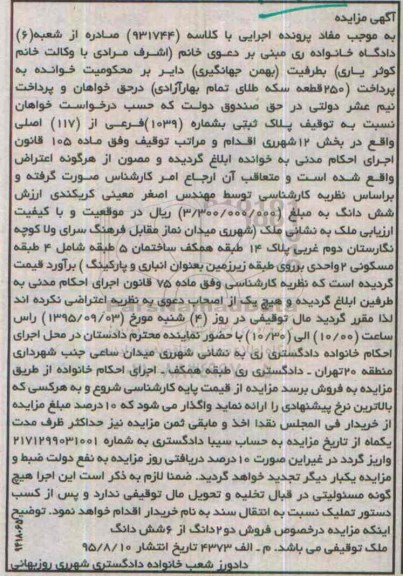 آگهی مزایده
به موجب مفاد پرونده اجرایی با کلاسه (۹۳۱۷۴۴) صادره از شعبه(۶)
دادگاه خانواده ری مبنی بر دعوی خانم (اشرف مرادی با وکالت خانم
کوثر یاری) بطرفیت (بهمن جهانگیری) دایر بر محکومیت خوانده به
پرداخت (۲۵۰قطعه سکه طلای تمام بهارآزادی) درحق خواهان و پرداخت
نیم عشر دولتی در حق صندوق دولت که حسب درخواست خواهان
نسبت به توقیف پلاک ثبتی بشماره (۱۰۳۹)فرعی از (۱۱۷) اصلی
واقع در بخش ۱۲شهرری اقدام و مراتب توقیف وفق ماده ۱۰۵ قانون
اجرای احکام مدنی به خوانده ابلاغ گردیده و مصون از هرگونه اعتراض
واقع شده است و متعاقب آن ارجاع امر کارشناس صورت گرفته و
براساس نظریه کارشناسی توسط مهندس اصغر معینی کریکندی ارزش
شش دانگ به مبلغ (۳/۳۰۰/۰۰۰/۰۰۰) ریال در موقعیت و با کیفیت
ارزیابی ملک به نشانی ملک (شهرری میدان نماز مقابل فرهنگ سرای ولا کوچه
نگارستان دوم غربی پلاک ۱۴ طبقه همکف ساختمان ۵ طبقه شامل ۴ طبقه
مسکونی ۲واحدی برروی طبقه زیرزمین بعنوان انباری و پارکینگ ) برآورد قیمت
گردیده است که نظریه کارشناسی وفق ماده ۷۵ قانون اجرای احکام مدنی به
طرفین ابلاغ گردیده و هیچ یک از اصحاب دعوی به نظریه اعتراضی نکرده اند
لذا مقرر گردید مال توقیفی در روز (۴) شنبه مورخ (۱۳۹۵/۰۹/۰۳) راس
ساعت (۱۰/۰۰) الی (۱۰/۳۰) با حضور نماینده محترم دادستان در محل اجرای
احکام خانواده دادگستری ری به نشانی شهرری میدان ساعی جنب شهرداری
منطقه ۲۰تهران - دادگستری ری طبقه همکف - اجرای احکام خانواده از طریق
مزایده به فروش برسد مزایده از قیمت پایه کارشناسی شروع و به هرکسی که
بالاترین نرخ پیشنهادی را ارائه نماید واگذار می شود که ۱۰درصد مبلغ مزایده
از خریدار فی المجلس نقدا اخذ و مابقی ثمن مزایده نیز حداکثر ظرف مدت
یکماه از تاریخ مزایده به حساب سیبا دادگستری به شماره ۲۱۷۱۲۹۹۰۳۱۰۰۱
واریز گردد در غیراین صورت ۱۰درصد دریافتی روز مزایده به نفع دولت ضبط و
مزایده یکبار دیگر تجدید خواهد گردید. ضمنا لازم به ذکر است این اجرا هیچ
گونه مسئولیتی در قبال تخلیه و تحویل مال توقیفی ندارد و پس از کسب
دستور تملیک نسبت به انتقال سند به نام خریدار اقدام خواهد نمود. توضیح
اینکه مزایده درخصوص فروش دو۲دانگ از ۶شش دانگ
ملک توقیفی می باشد. م - الف ۴۳۷۳ تاریخ انتشار ۹۵/۸/۱۰
دادورز شعب خانواده دادگستری شهرری روزبهانی